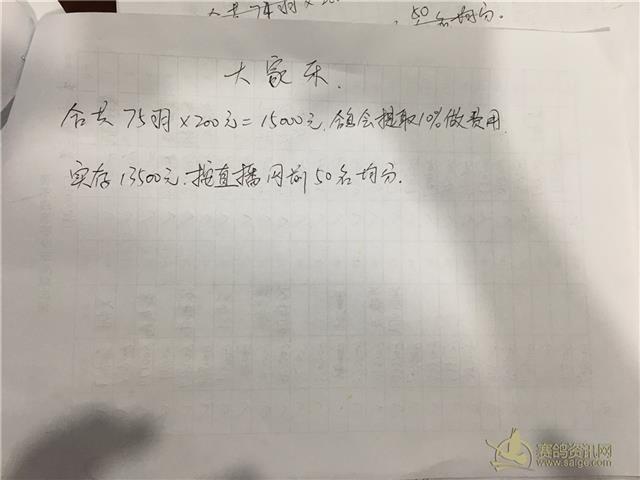 50名均分.
大家乐.
合共75羽×200元=15000元.鸽会提取10%做费用.
实存13500元.按直播网前50名均分.
赛鸽资讯网
www.saige.com